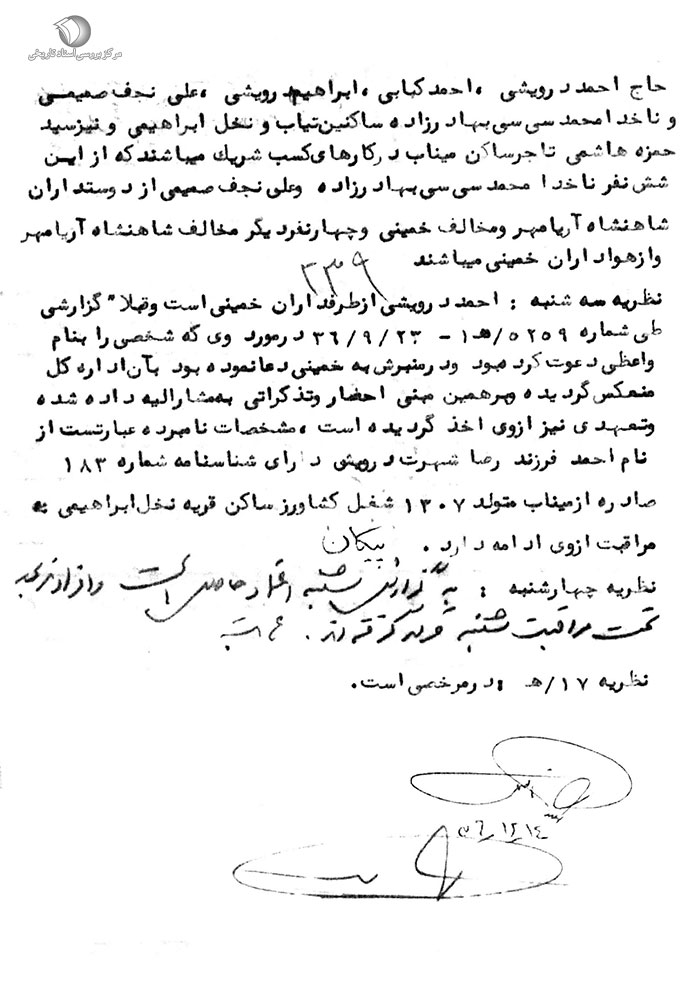 مرکز بررسی اسناد تاریخی
حاج احمد درویشی ، احمد کبابی ، ابراهیم درویشی ، علی نجف صمیمی
و ناخدا محمد سی سی بهادرزاده ساکنین تیاب و نخل ابراهیمی و نیز سید
حمزه هاشمی تاجر ساکن میناب در کارهای کسب شریک میباشند که از ایـن
شش نفر ناخدا محمد سی سی بهادرزاده وعلی نجف صمیمی از دوستداران
شاهنشاه آریامهر ومخالف خمینی وچهارنفر دیگر مخالف شاهنشاه آریامهر
وازهواداران خمینی میباشند
۳۳۹
نظریه سه شنبه : احمد درویشی ازطرفداران خمینی است وقبلا" گزارشی
طی شماره ۵۲۵۹/هـ۱ - ۳۶/۹/۲۳ درمورد وی که شخصی را بنام
واعظی دعوت کرده بود ودر منبرش به خمینی دعا نموده بود بآن اداره کل
منعکس گردیده وبرهمین مبنی احضار وتذکراتی به مشارالیه داده شده
وتعهدی نیز ازوی اخذ گردیده است ، مشخصات نامبرده عبارتست از
نام احمد فرزند رضا شهرت درویشی دارای شناسنامه شماره ۱۸۳
صادره ازمیناب متولد ۱۳۰۷ شغل کشاورز ساکن قریه نخل ابراهیمی به
مراقبت ازوی ادامه دارد . پیکان
نظریه چهارشنبه : به گزارش شنبه اعتماد حاصل است وافراد
تحت مراقبت شنبه قرار گرفته اند .
نظریه ۱۷/هـ : درمرخصی است .
۳۶/۱۲/۱۴